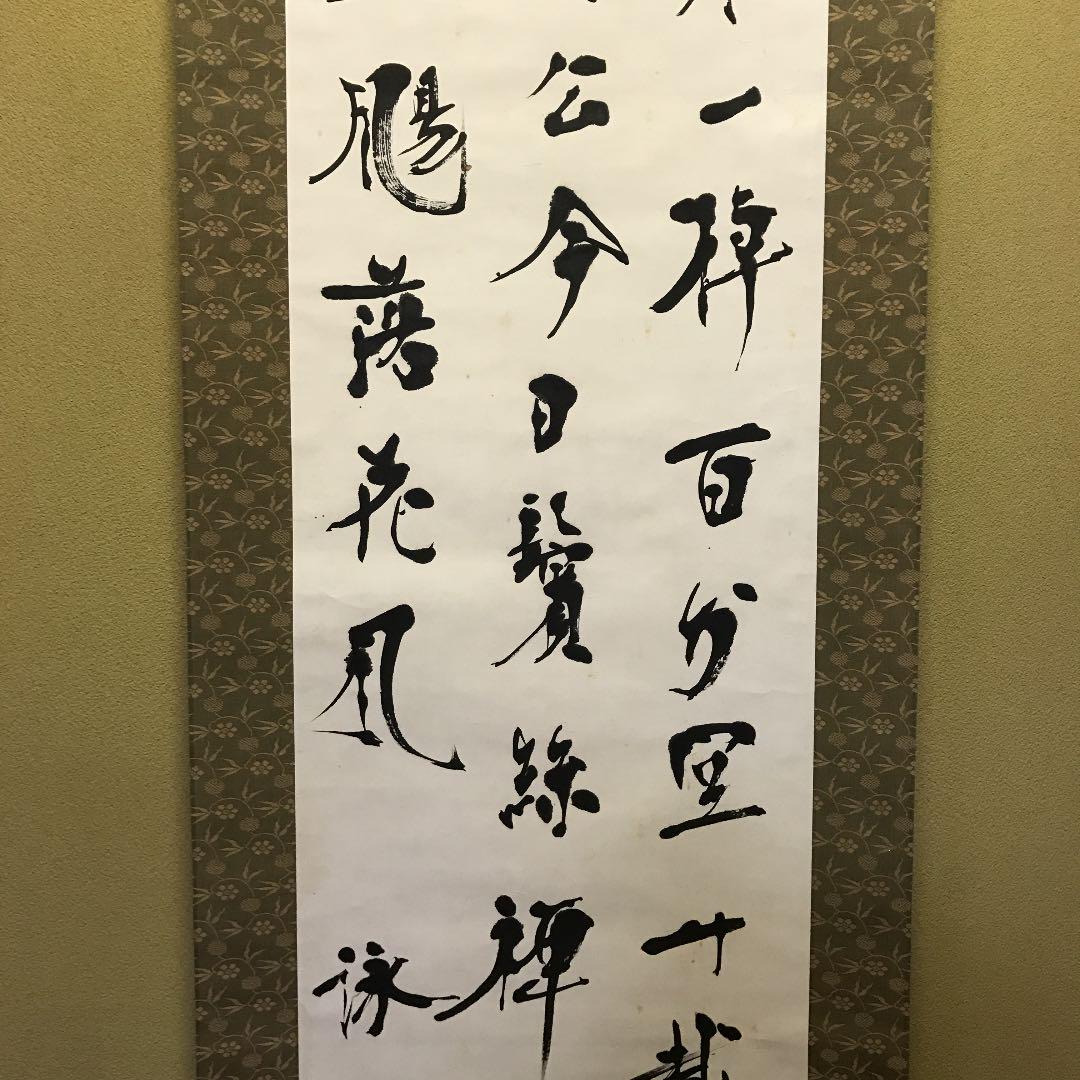 一棹百分空十載
公今日鬢絲禪
颺落花風 詠